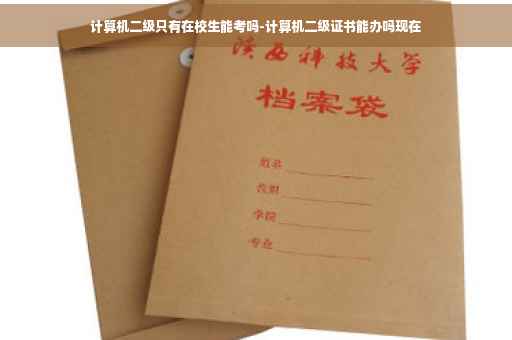 计算机二级只有在校生能考吗-计算机二级证书能办吗现在
陕西科技大学
档案袋
学院
专业